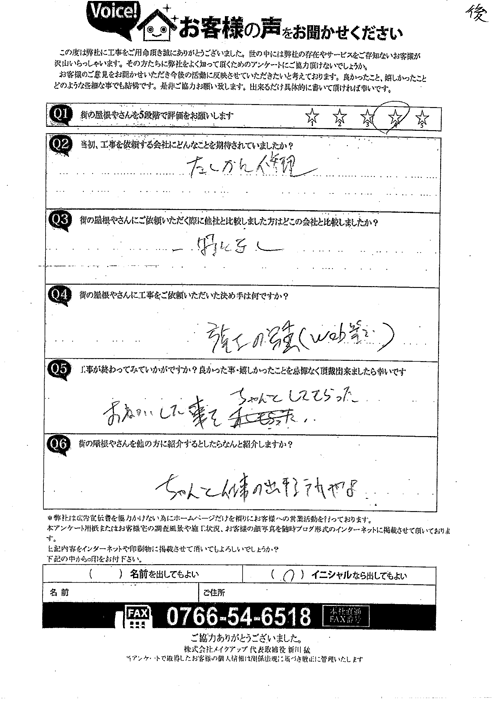 後
Voice!
お客様の声をお聞かせください
この度は弊社に工事をご用命頂き誠にありがとうございました。世の中には弊社の存在やサービスをご存知ないお客様が
沢山いらっしゃいます。その方たちに弊社をよく知って頂くためのアンケートにご協力頂けないでしょうか。
お客様のご意見をお聞かせいただき今後の活動に反映させていただきたいと考えております。良かったこと、嬉しかったこと
どのような些細な事でも結構です。是非ご協力お願い致します。出来るだけ具体的に書いて頂ければ幸いです。
Q1 街の屋根やさんを5段階で評価をお願いします
1 2 3 4 5
Q2 当初、工事を依頼する会社にどんなことを期待されていましたか?
たしかな修理
Q3 街の屋根やさんにご依頼いただく際に他社と比較しました方はどこの会社と比較しましたか?
特になし
Q4 街の屋根やさんに工事をご依頼いただいた決め手は何ですか?
(Web
Q5 工事が終わってみていかがですか?良かった事・嬉しかったことを忌憚なく頂戴出来ましたら幸いです
ちゃんとしてもらった
おねがいした事を
Q6 街の屋根やさんを他の方に紹介するとしたらなんと紹介しますか?
ちゃんと仕事の出来る
※弊社は広告宣伝費を協力かけない為にホームページだけを頼りにお客様への営業活動を行っております。
本アンケート用紙またはお客様宅の調査風景や施工状況、お客様の顔写真を随時ブログ形式のインターネットに掲載させて頂いております。
上記内容をインターネットや印刷物に掲載させて頂いてもよろしいでしょうか?
下記の中から○印をお付下さい。
( )名前を出してもよい (○)イニシャルなら出してもよい
名前 ご住所
FAX 0766-54-6518 本社直通 FAX番号
ご協力ありがとうございました。
株式会社メイクアップ 代表取締役 新川 猛
当アンケートで取得したお客様の個人情報は関係法規に基づき厳正に管理いたします